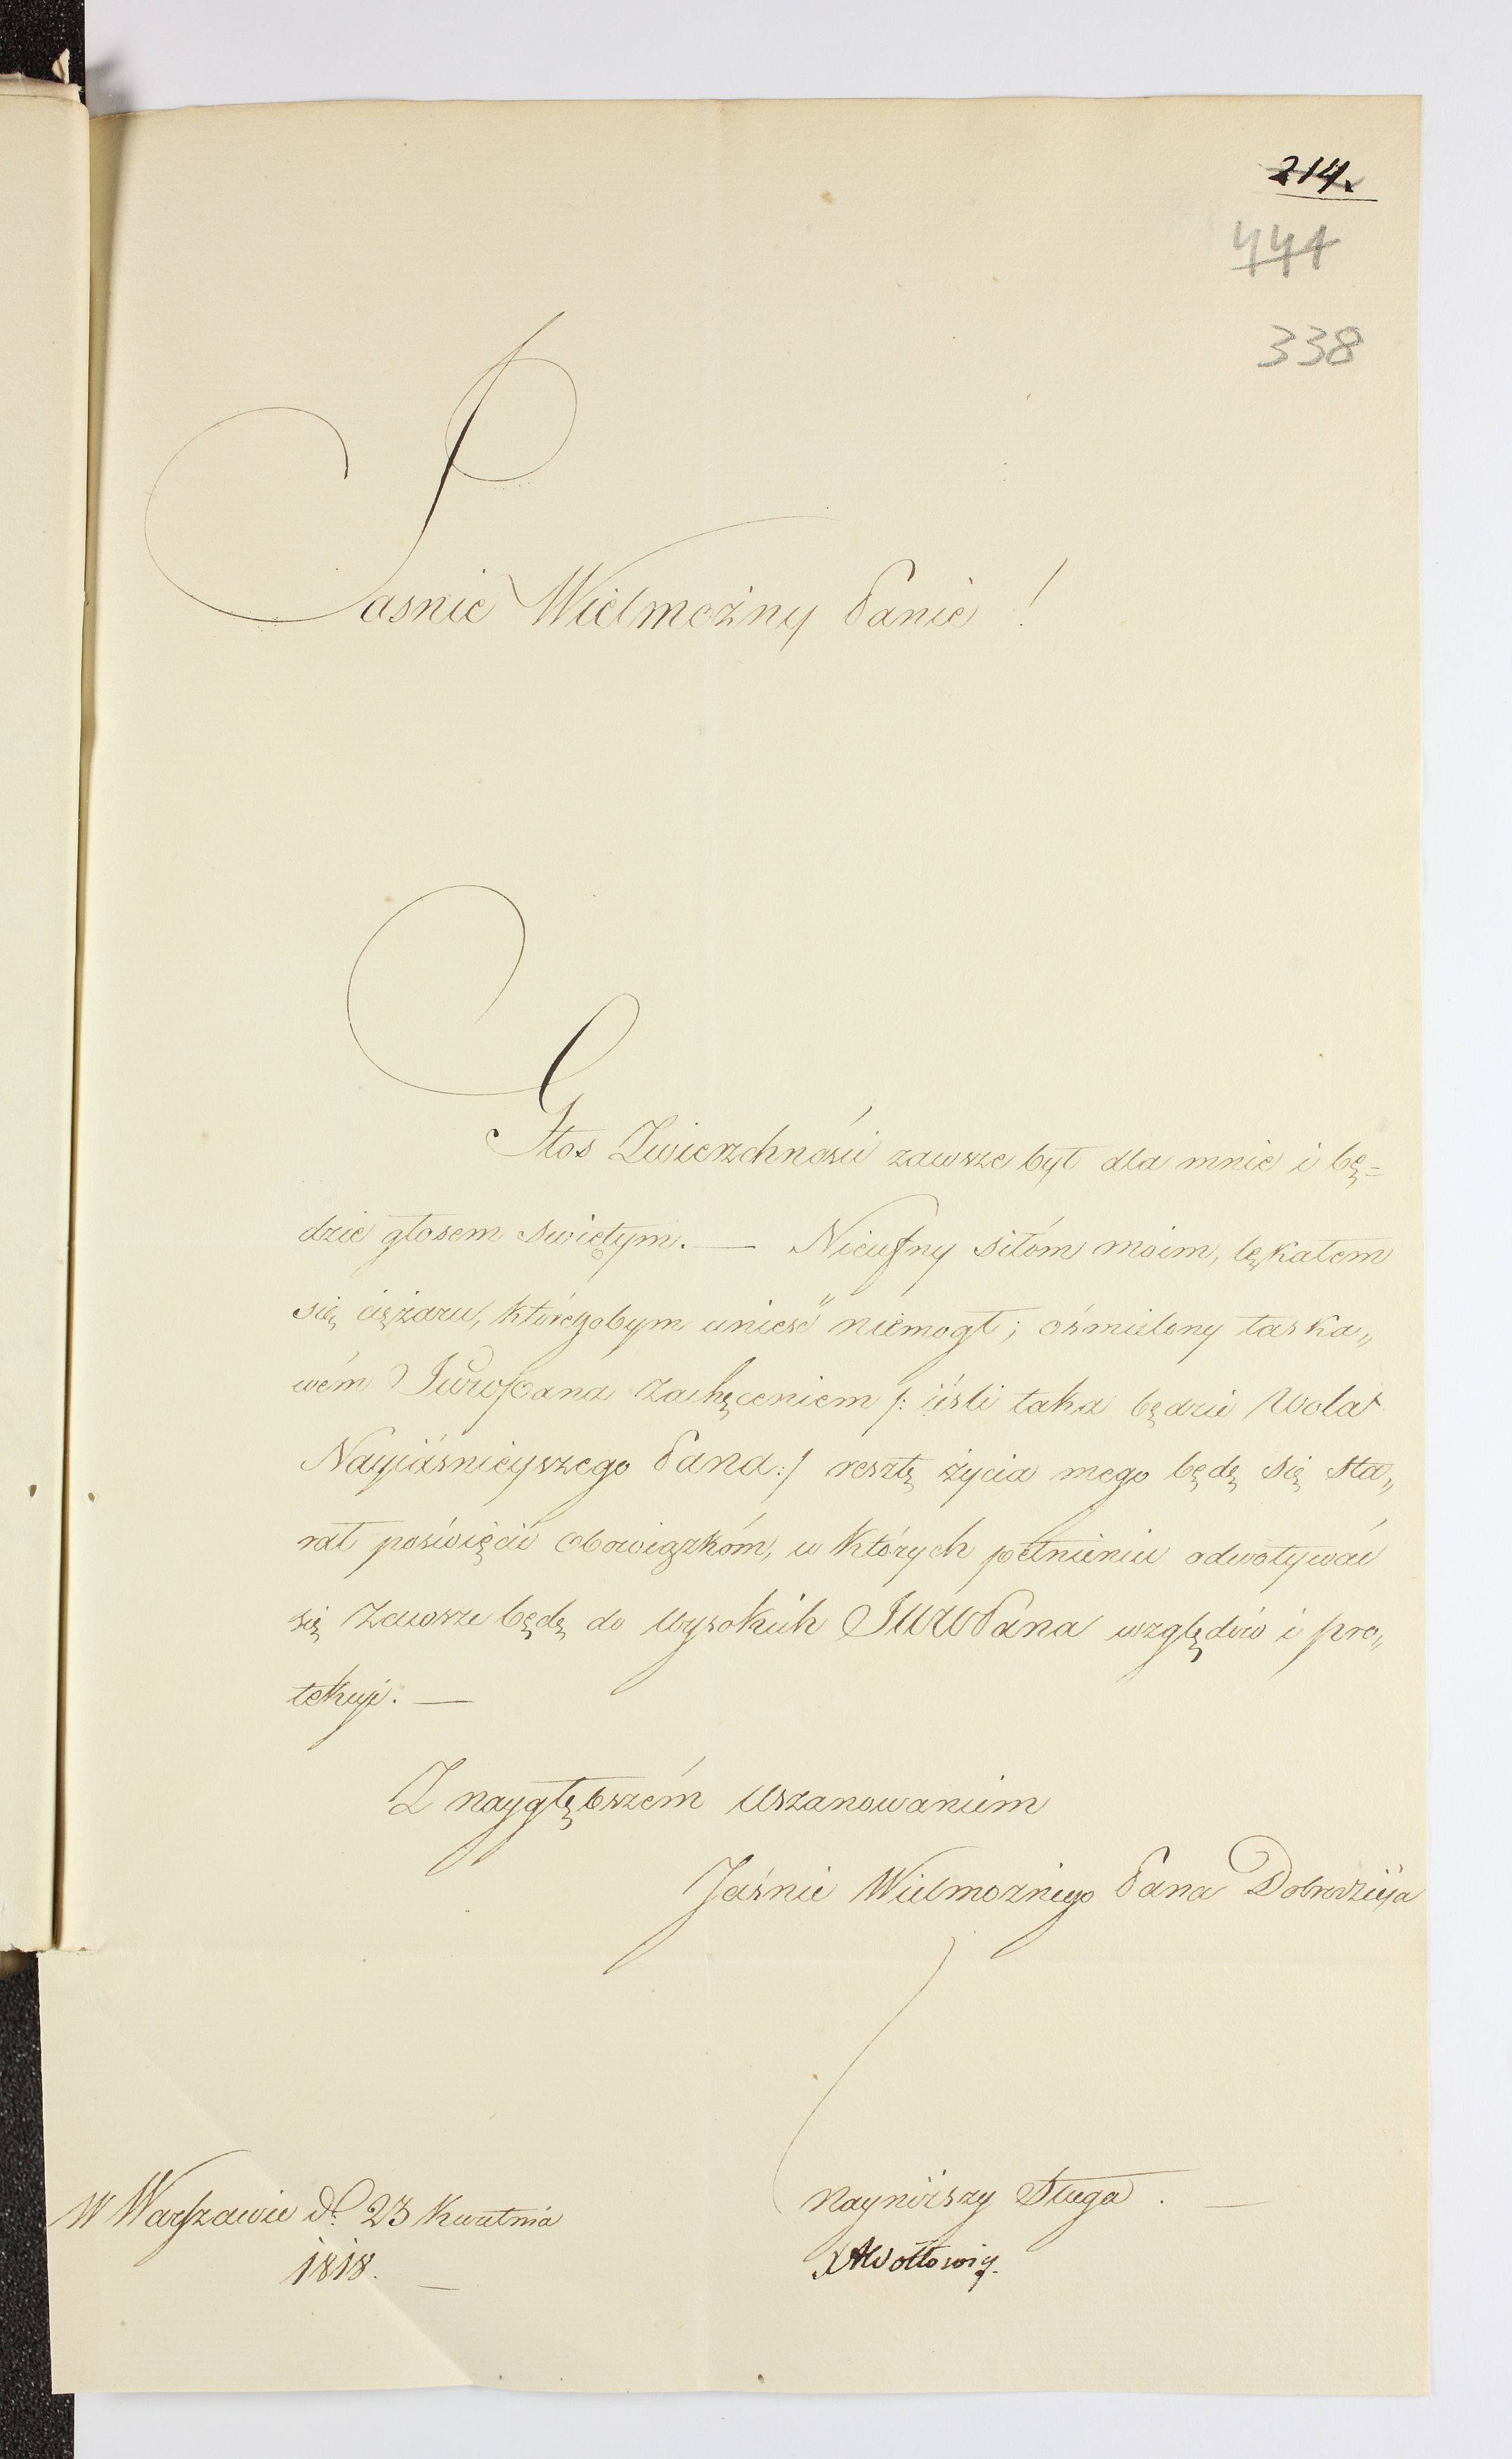 214.
441
338
Jasnie Wielmożny Panie !
Głos Zwierzchności zawsze był dla mnie i bę=
dzie głosem swiętym. — Nieufny siłóm moim, lękałem
się ciężaru, któregobym unieść niemogł; ośmielony łaska„
wém JWWPana zachęceniem /: iésli taka będzie Wola
Nayiáśnieyszego Pana :/ resztę życia mego będę się sta„
rał poświęcić obowiązkóm, w których pełnieniu odwoływać
się zawsze będę do wysokich JWWPana względów i pro„
tekcyi. —
Z naygłębszém Uszanowaniem
Jaśnie Wielmożnego Pana Dobrodzieja
nayniższy Sługa . —
W Warszawie d. 23 Kwietnia
XAWołłowicz.
1818. —